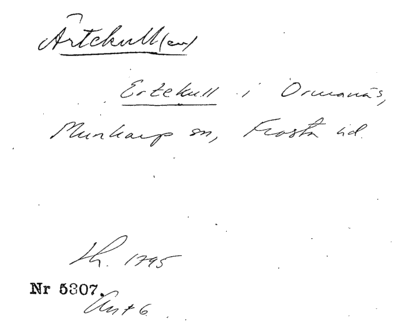 Ärtekull(en)
Ertekull i Ormanäs,
Munkarp sn, Frosta hd.
1795
Nr 5307.
Ant 6